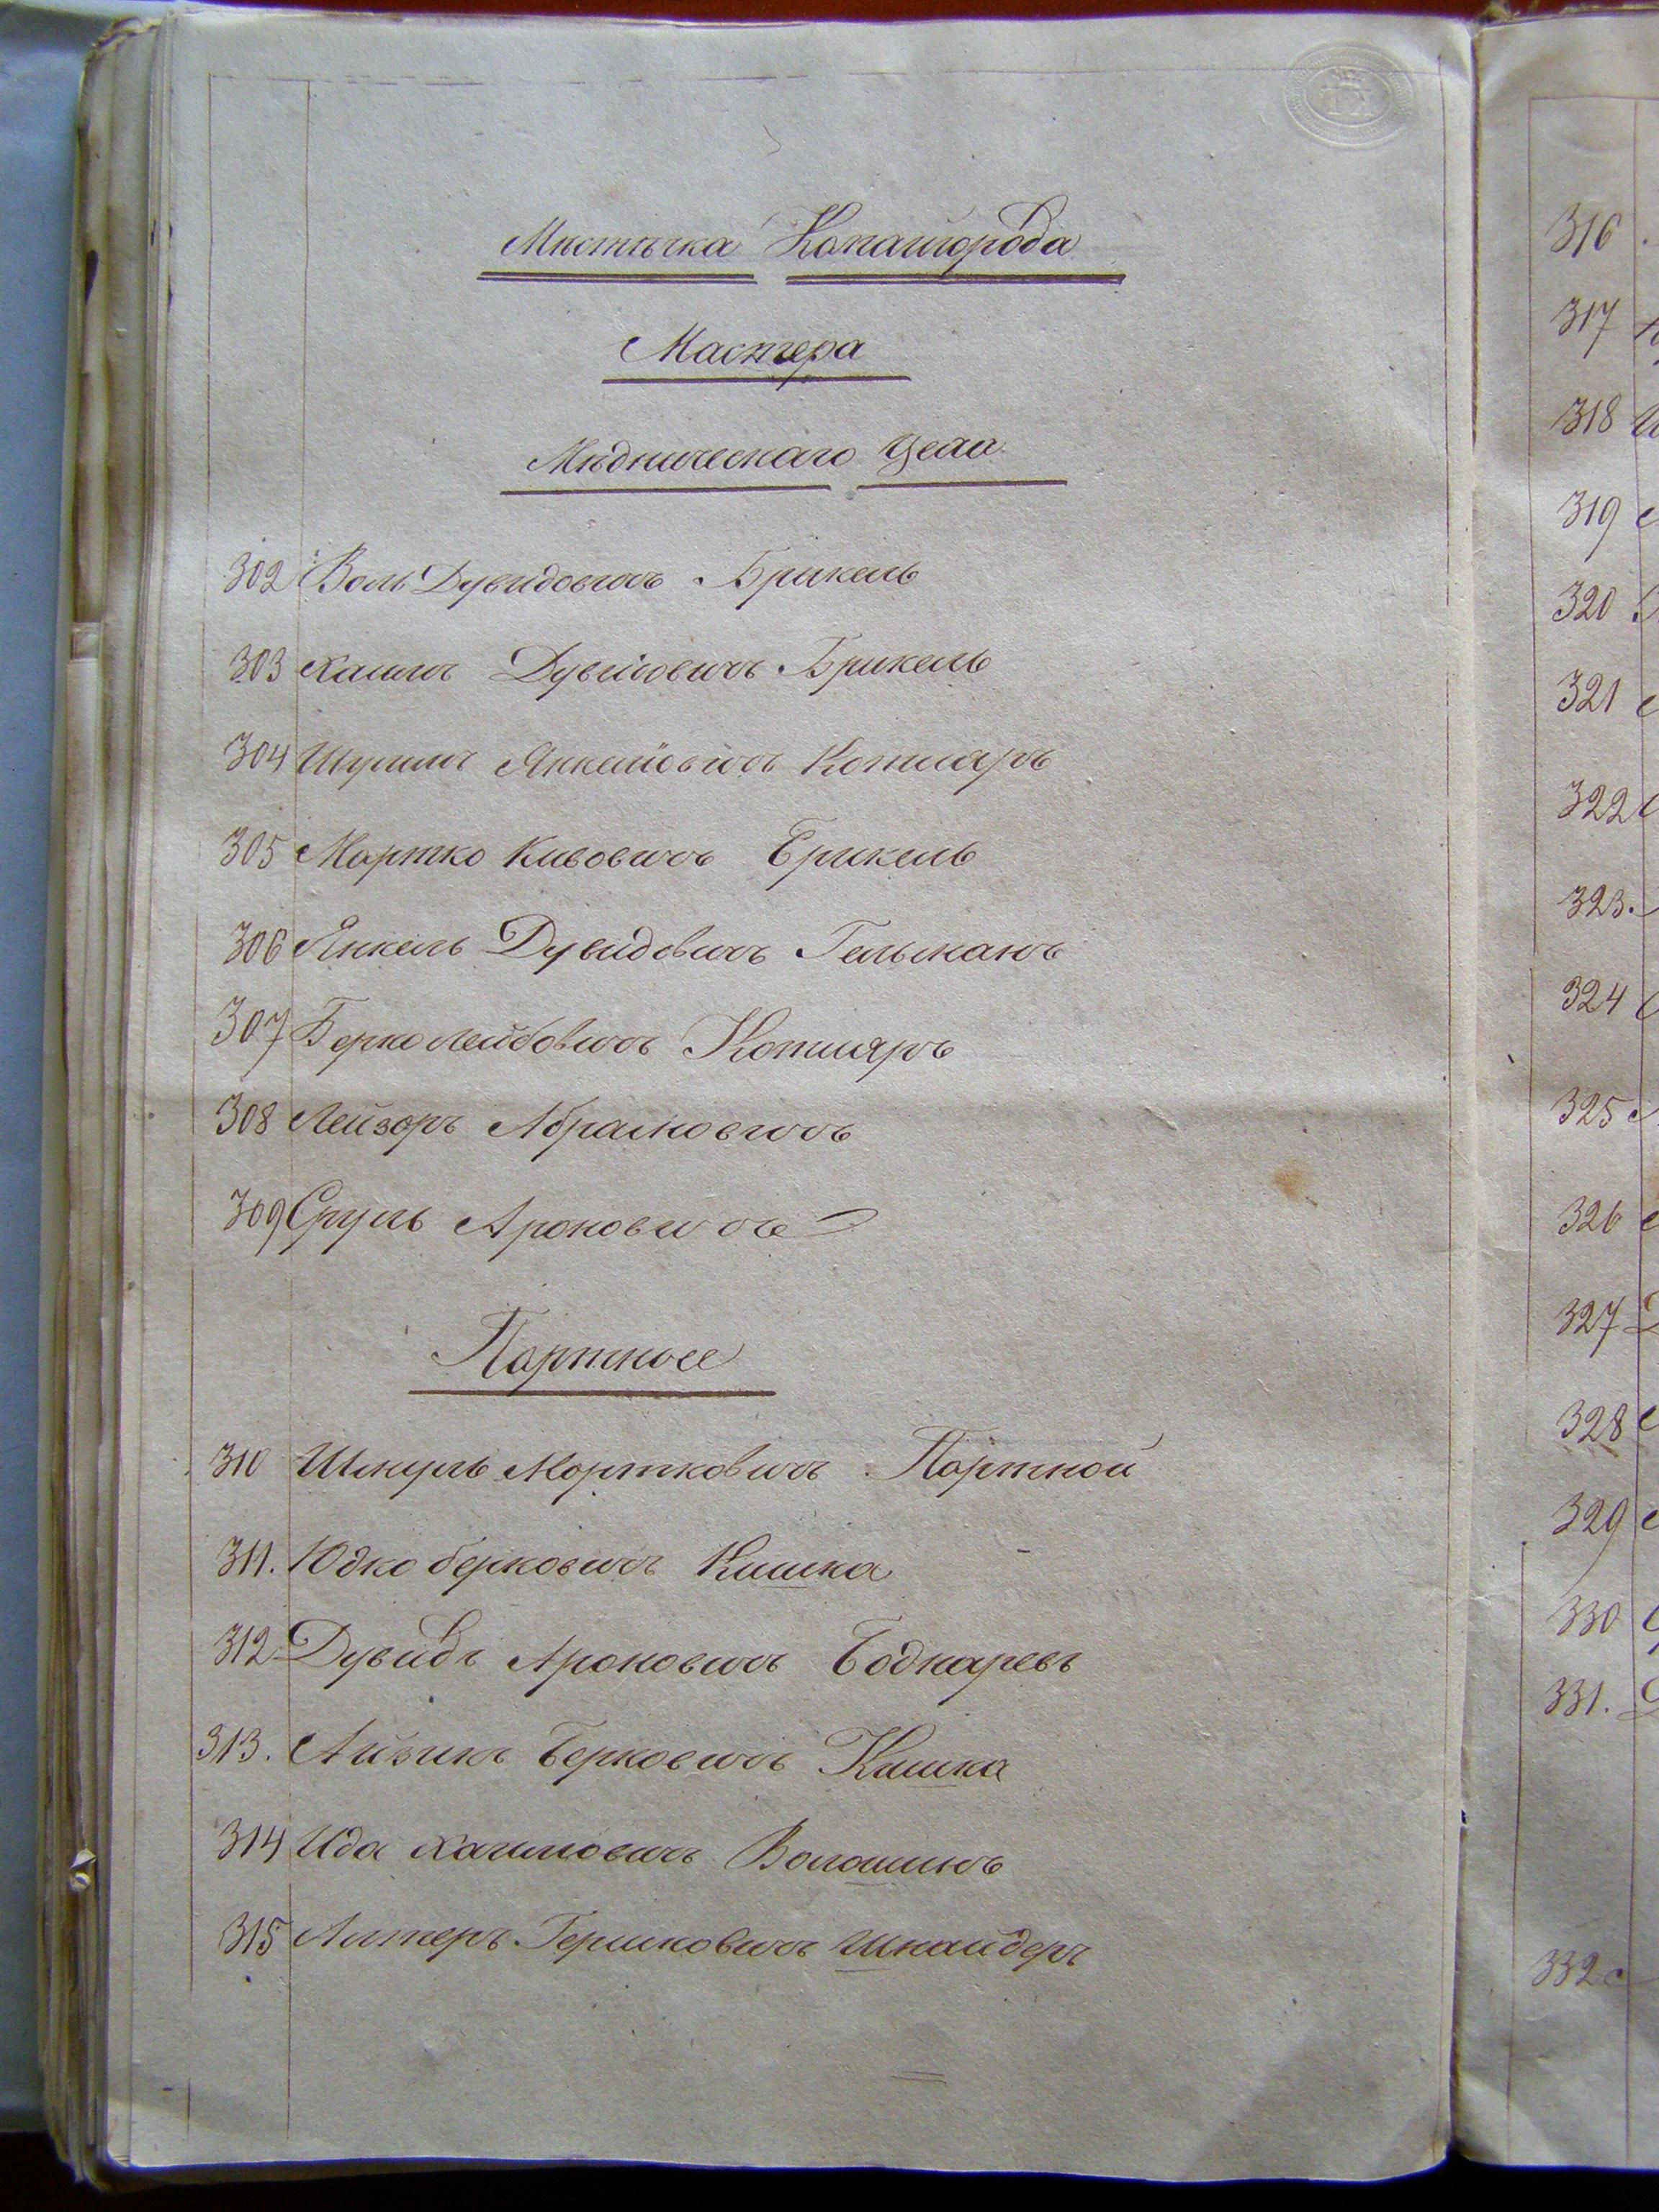 Мѣстѣчка Копайгорода
Мастера
Мѣдническаго Цеха
302 Воль Дувидовичъ Брикель
303 Хаимъ Дувидовичъ Брикель
304 Шулимъ Янкелiовичъ Котляръ
305 Мортко Кивовичъ Брикель
306 Янкель Дувидовичъ Гельманъ
307 Берко Лейбовичъ Котляръ
308 Лейзоръ Абрамовичъ
309 Сруль Ароновичъ
Портные
310 Шмуль Мортковичъ Портной
311. Юдко Берковичъ Кишка
312 Дувидъ Ароновичъ Боднаревъ
313. Айзикъ Берковичъ Кишка
314 Ида Хаимовичъ Волошинъ
315 Алтеръ Гершковичъ Шнайдеръ
316
317
318
319
320
321
322
323.
324
325
326
327
328
329
330
331.
332